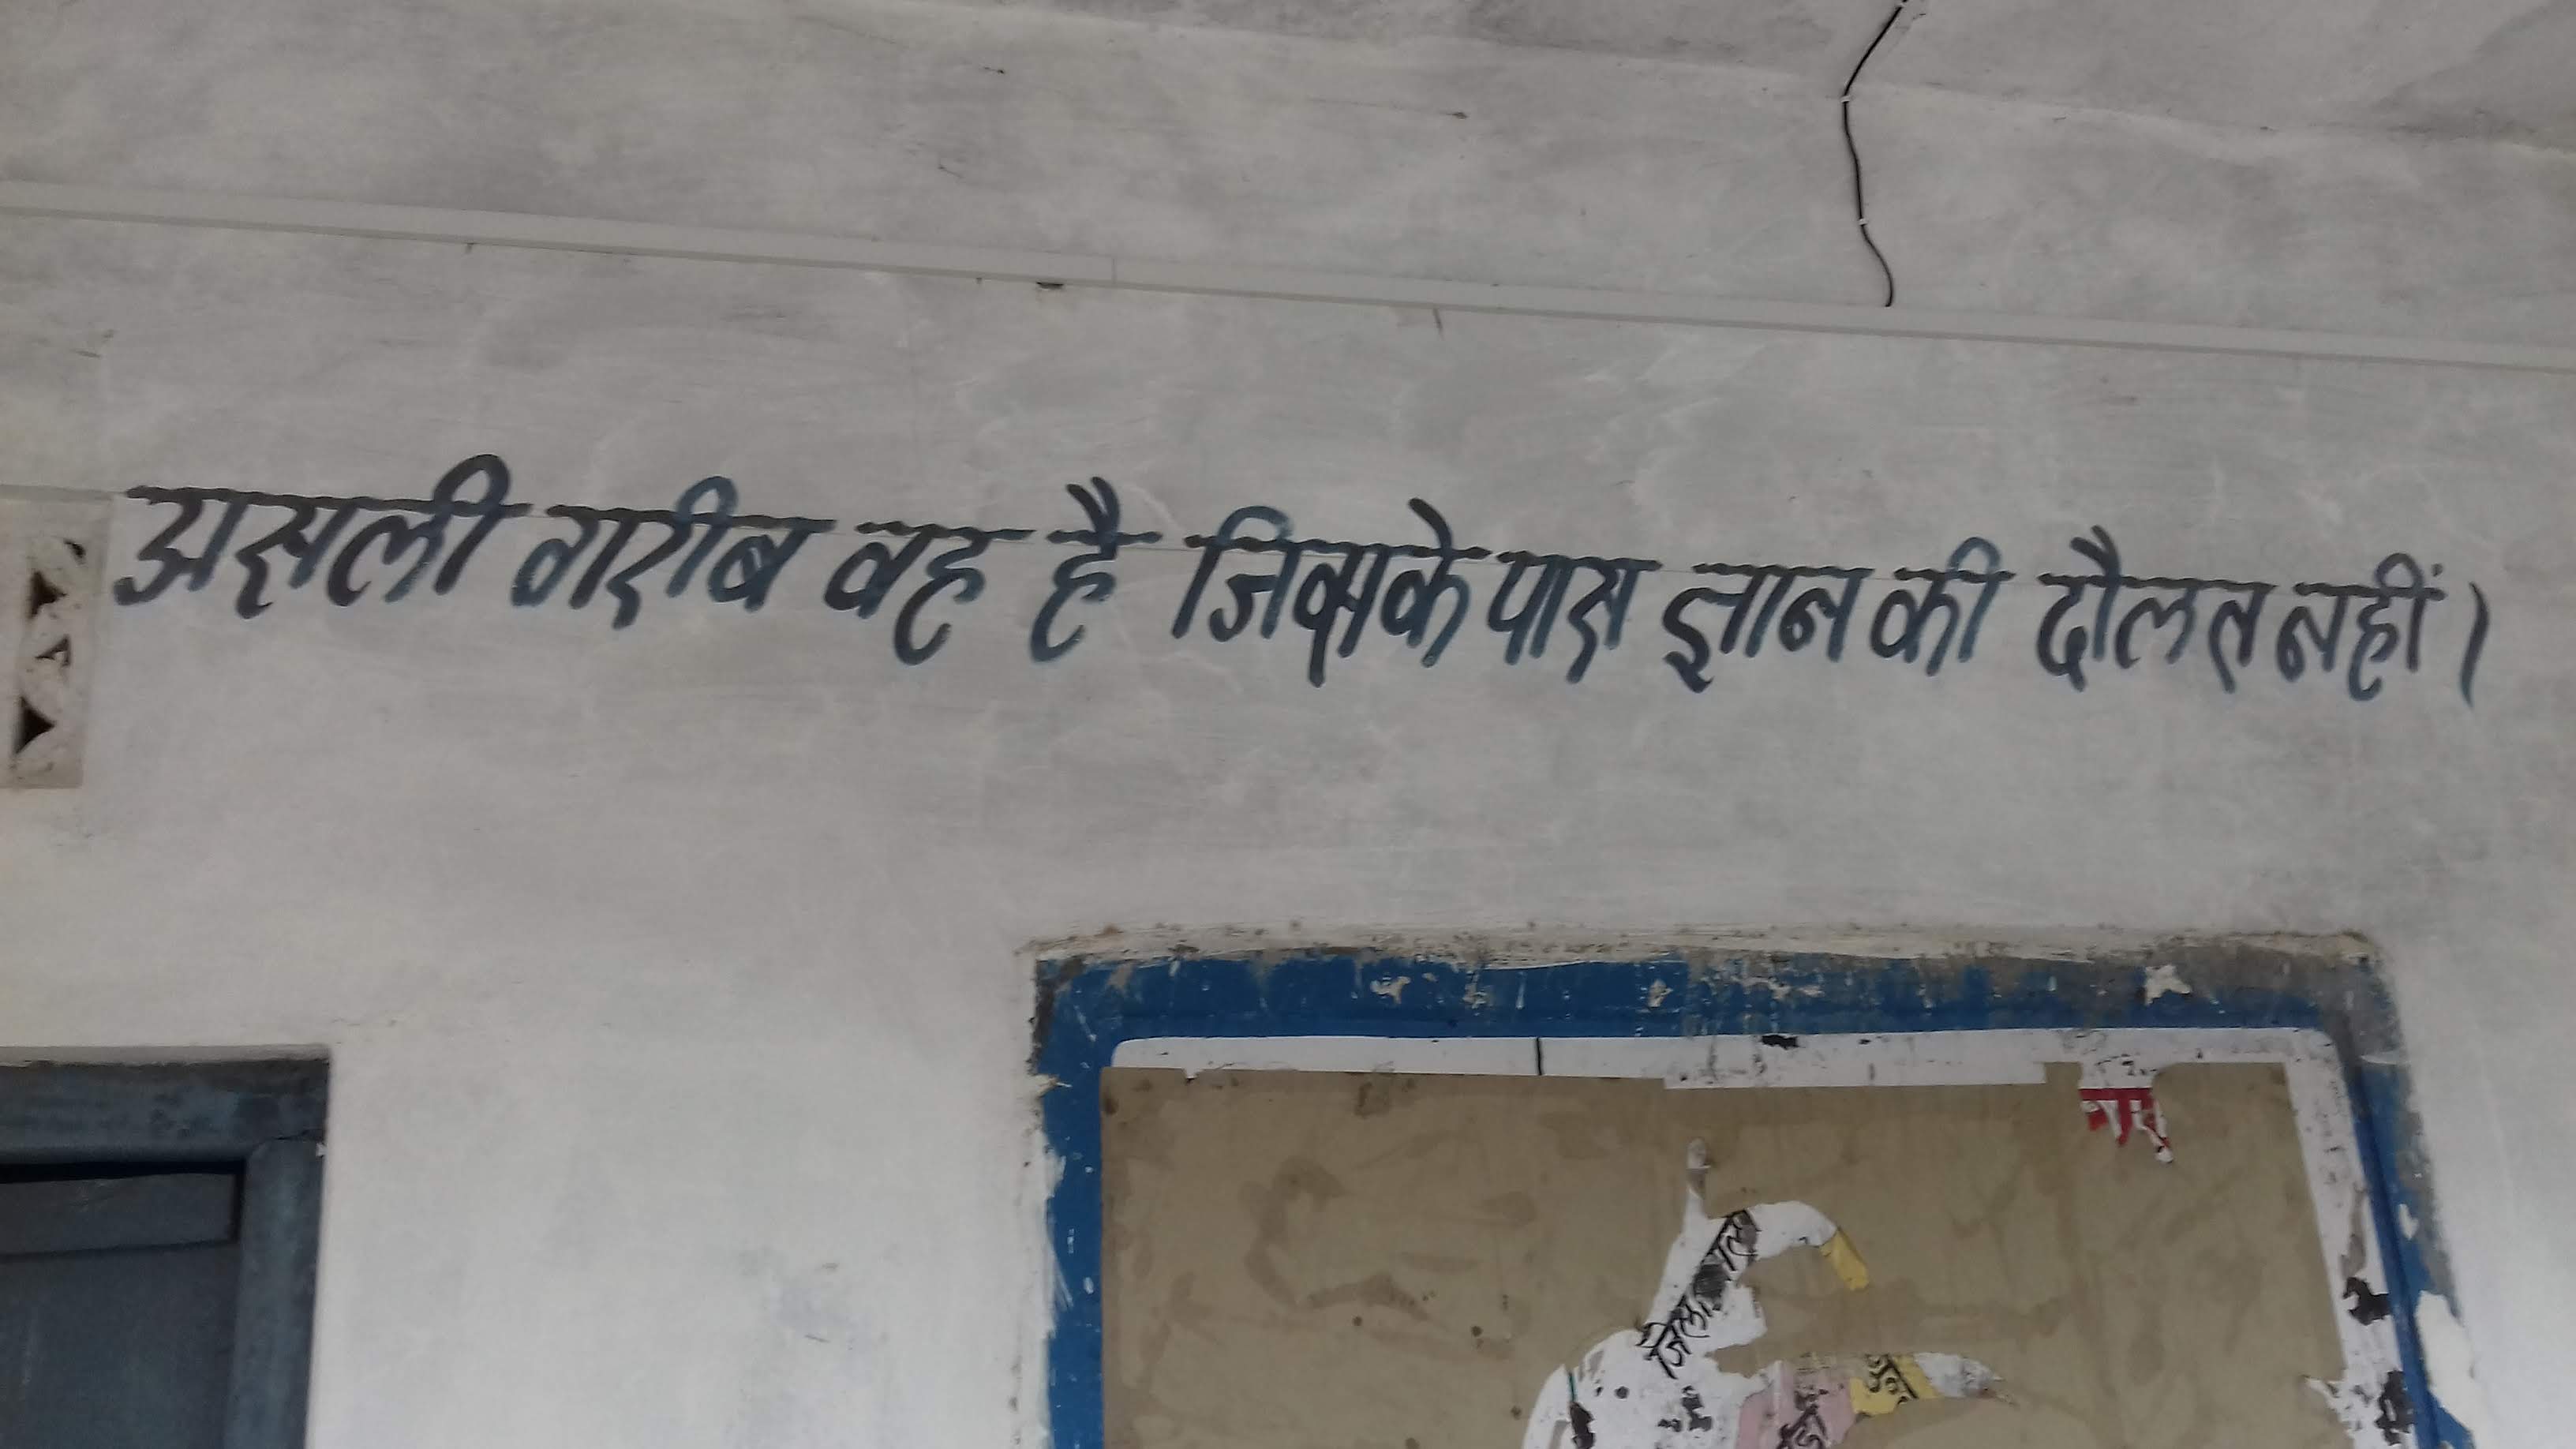 असली गरीब वह है जिसके पास ज्ञान की दौलत नहीं।